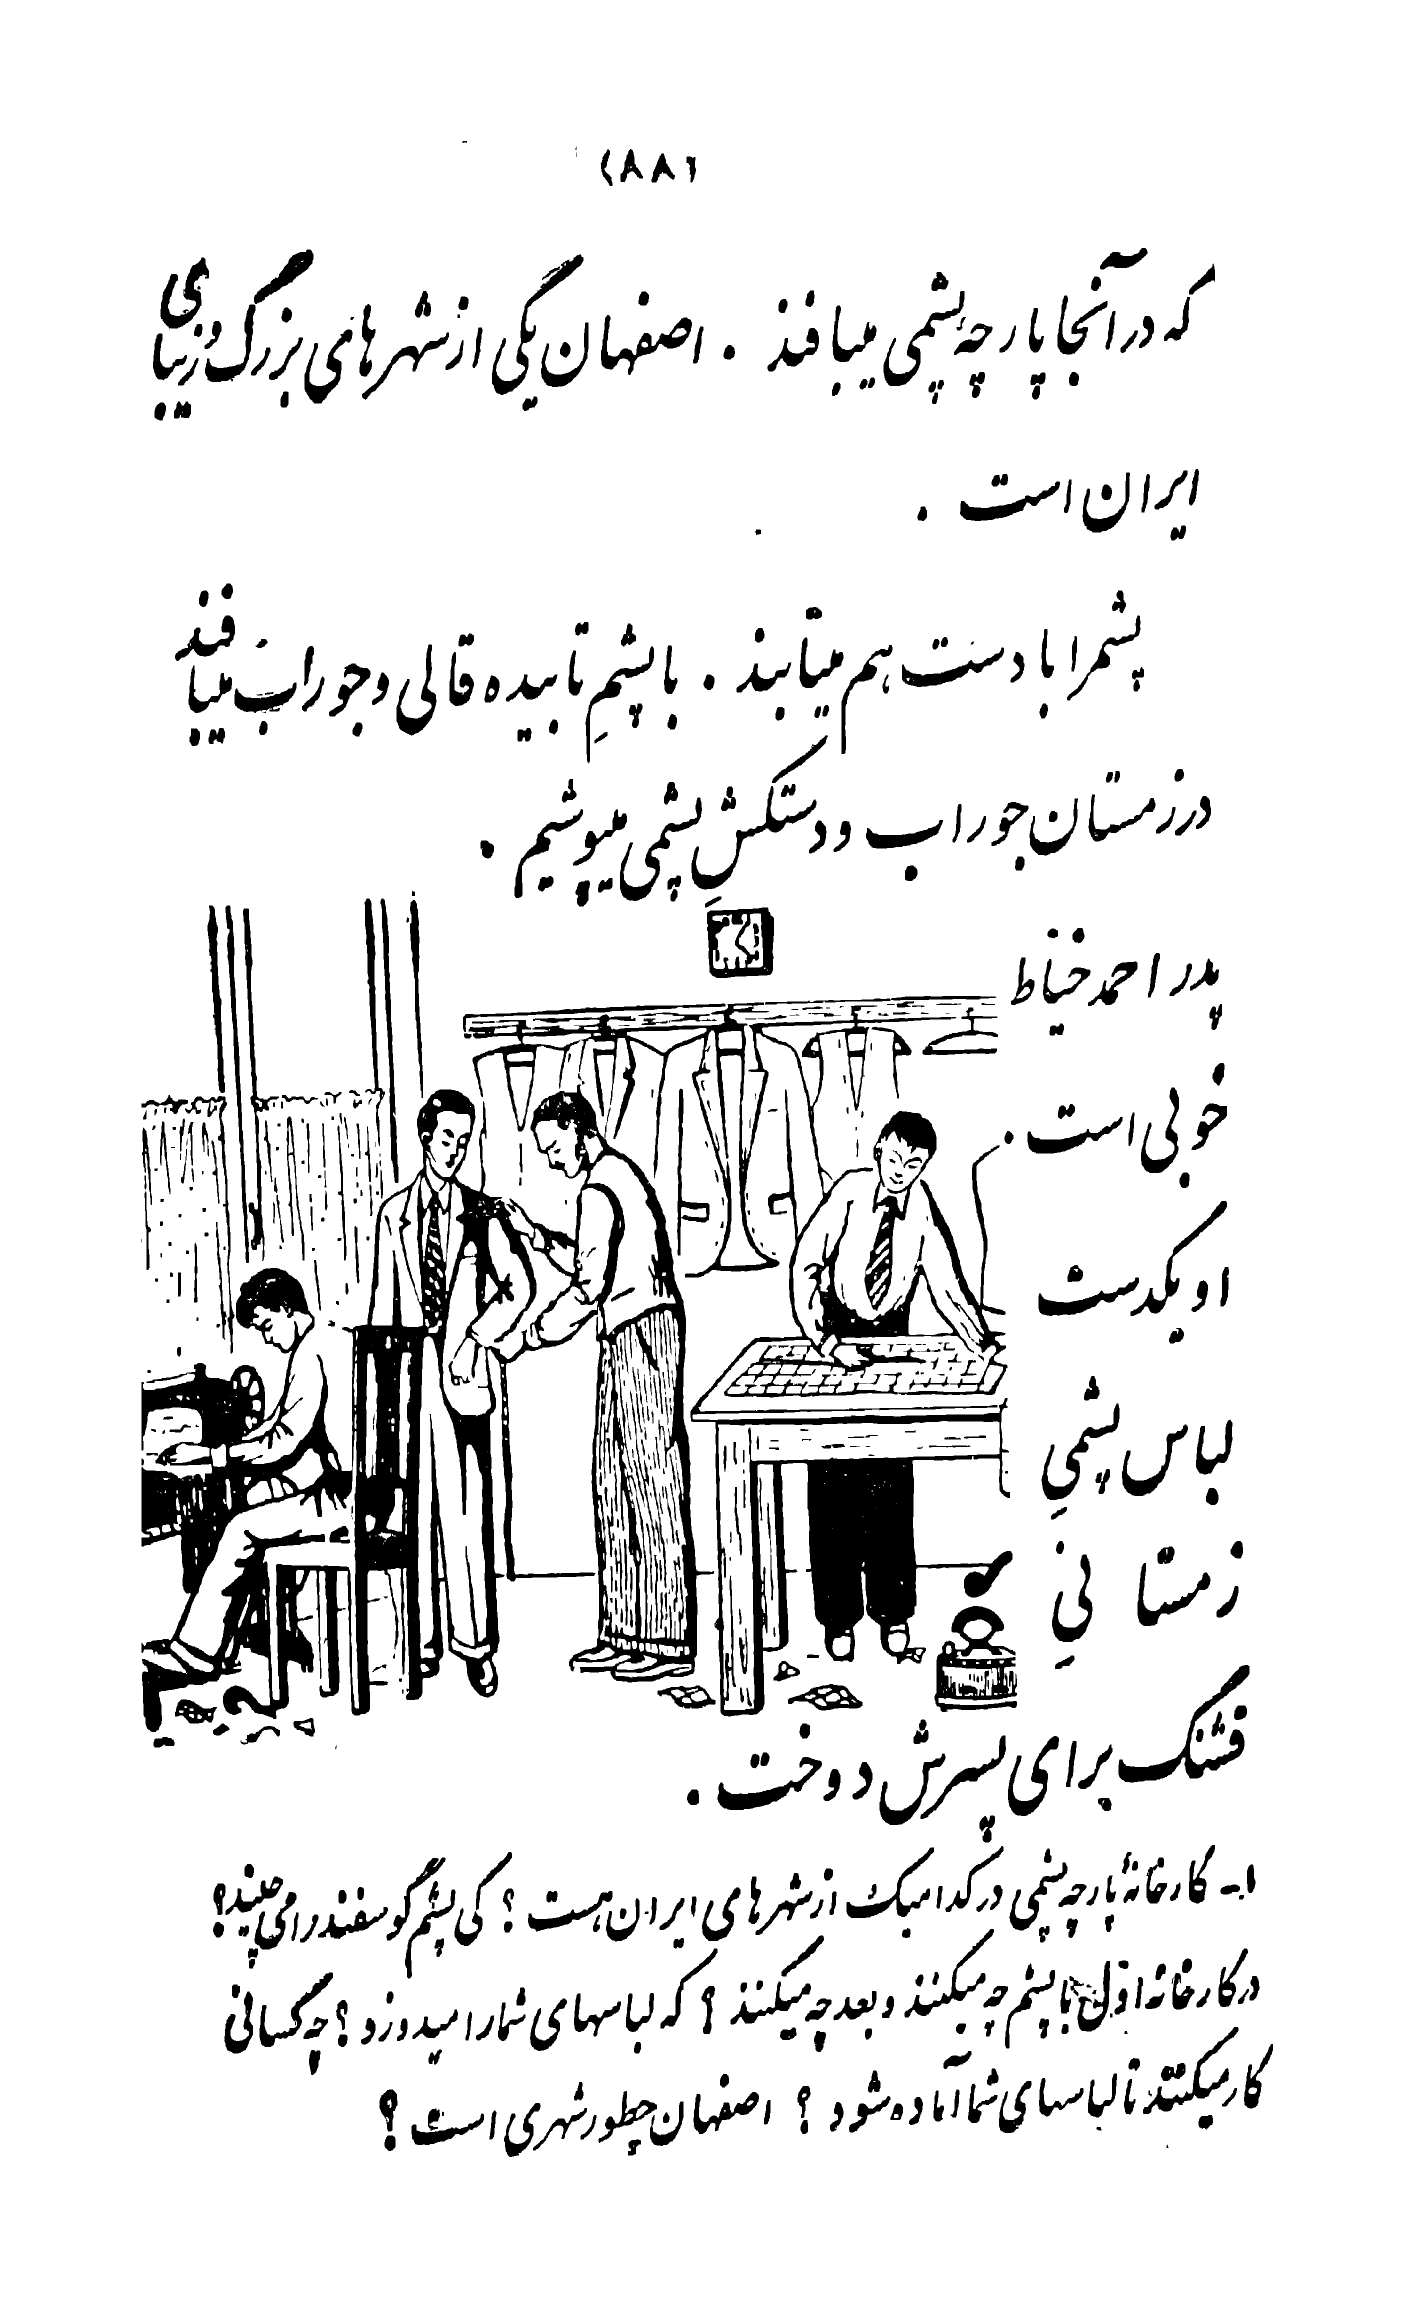 (۸۸)
که در آنجا پارچهٔ پشمی میبافند . اصفهان یکی از شهرهای بزرگ و زیبای
ایران است .
پشم را با دست هم میتابند . با پشمِ تابیده قالی و جوراب میبافند
در زمستان جوراب و دستکشِ پشمی میپوشیم .
پدر احمد خیاط
خوبی است .
او یکدست
لباس پشمیِ
زمستانیِ
قشنگ برای پسرش دوخت .
۱- کارخانهٔ پارچه پشمی در کدامیک از شهرهای ایران هست ؟ کی پشم گوسفند را می چیند ؟
در کارخانه اوّل با پشم چه میکنند و بعد چه میکنند ؟ که لباسهای شما را میدوزد ؟ چه کسانی
کار میکنند تا لباسهای شما آماده شود ؟ اصفهان چطور شهری است ؟